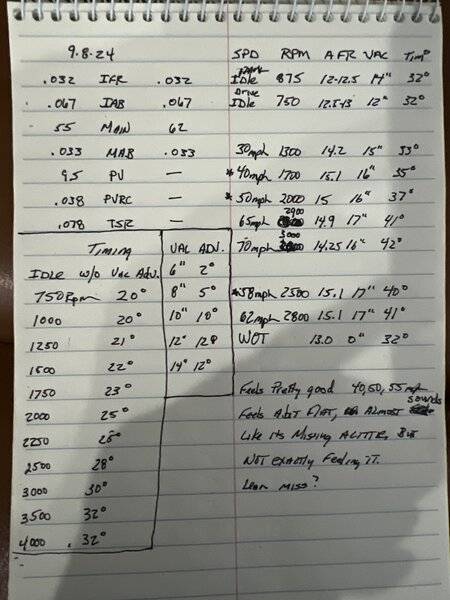 9.8.24
.032 IFR .032
.067 IAB .067
55 MAIN 62
.033 MAB .033
9.5 PV —
.038 PVRC —
.078 TSR —
TIMING
IDLE w/o VAC ADV.
750 RPM 20°
1000 20°
1250 21°
1500 22°
1750 23°
2000 25°
2250 26°
2500 28°
3000 30°
3500 32°
4000 32°
VAC ADV.
6" 2°
8" 5°
10" 10°
12" 12°
14" 12°
SPD RPM AFR VAC TIM°
PARK
IDLE 875 12-12.5 14" 32°
DRIVE
IDLE 750 12.5-13 12" 32°
30mph 1300 14.2 15" 33°
*40mph 1700 15.1 16" 35°
*50mph 2000 15 16" 37°
65mph 2900 14.9 17" 41°
70mph 3000 14.25 16" 42°
*58mph 2500 15.1 17" 40°
62mph 2800 15.1 17" 41°
WOT 13.0 0" 32°
Feels Pretty good 40,50,55 mph
Feels A bit FLAT, ALMOST sounds
Like its Missing A LITTLE, BUT
NOT exactly Feeling IT.
Lean miss?